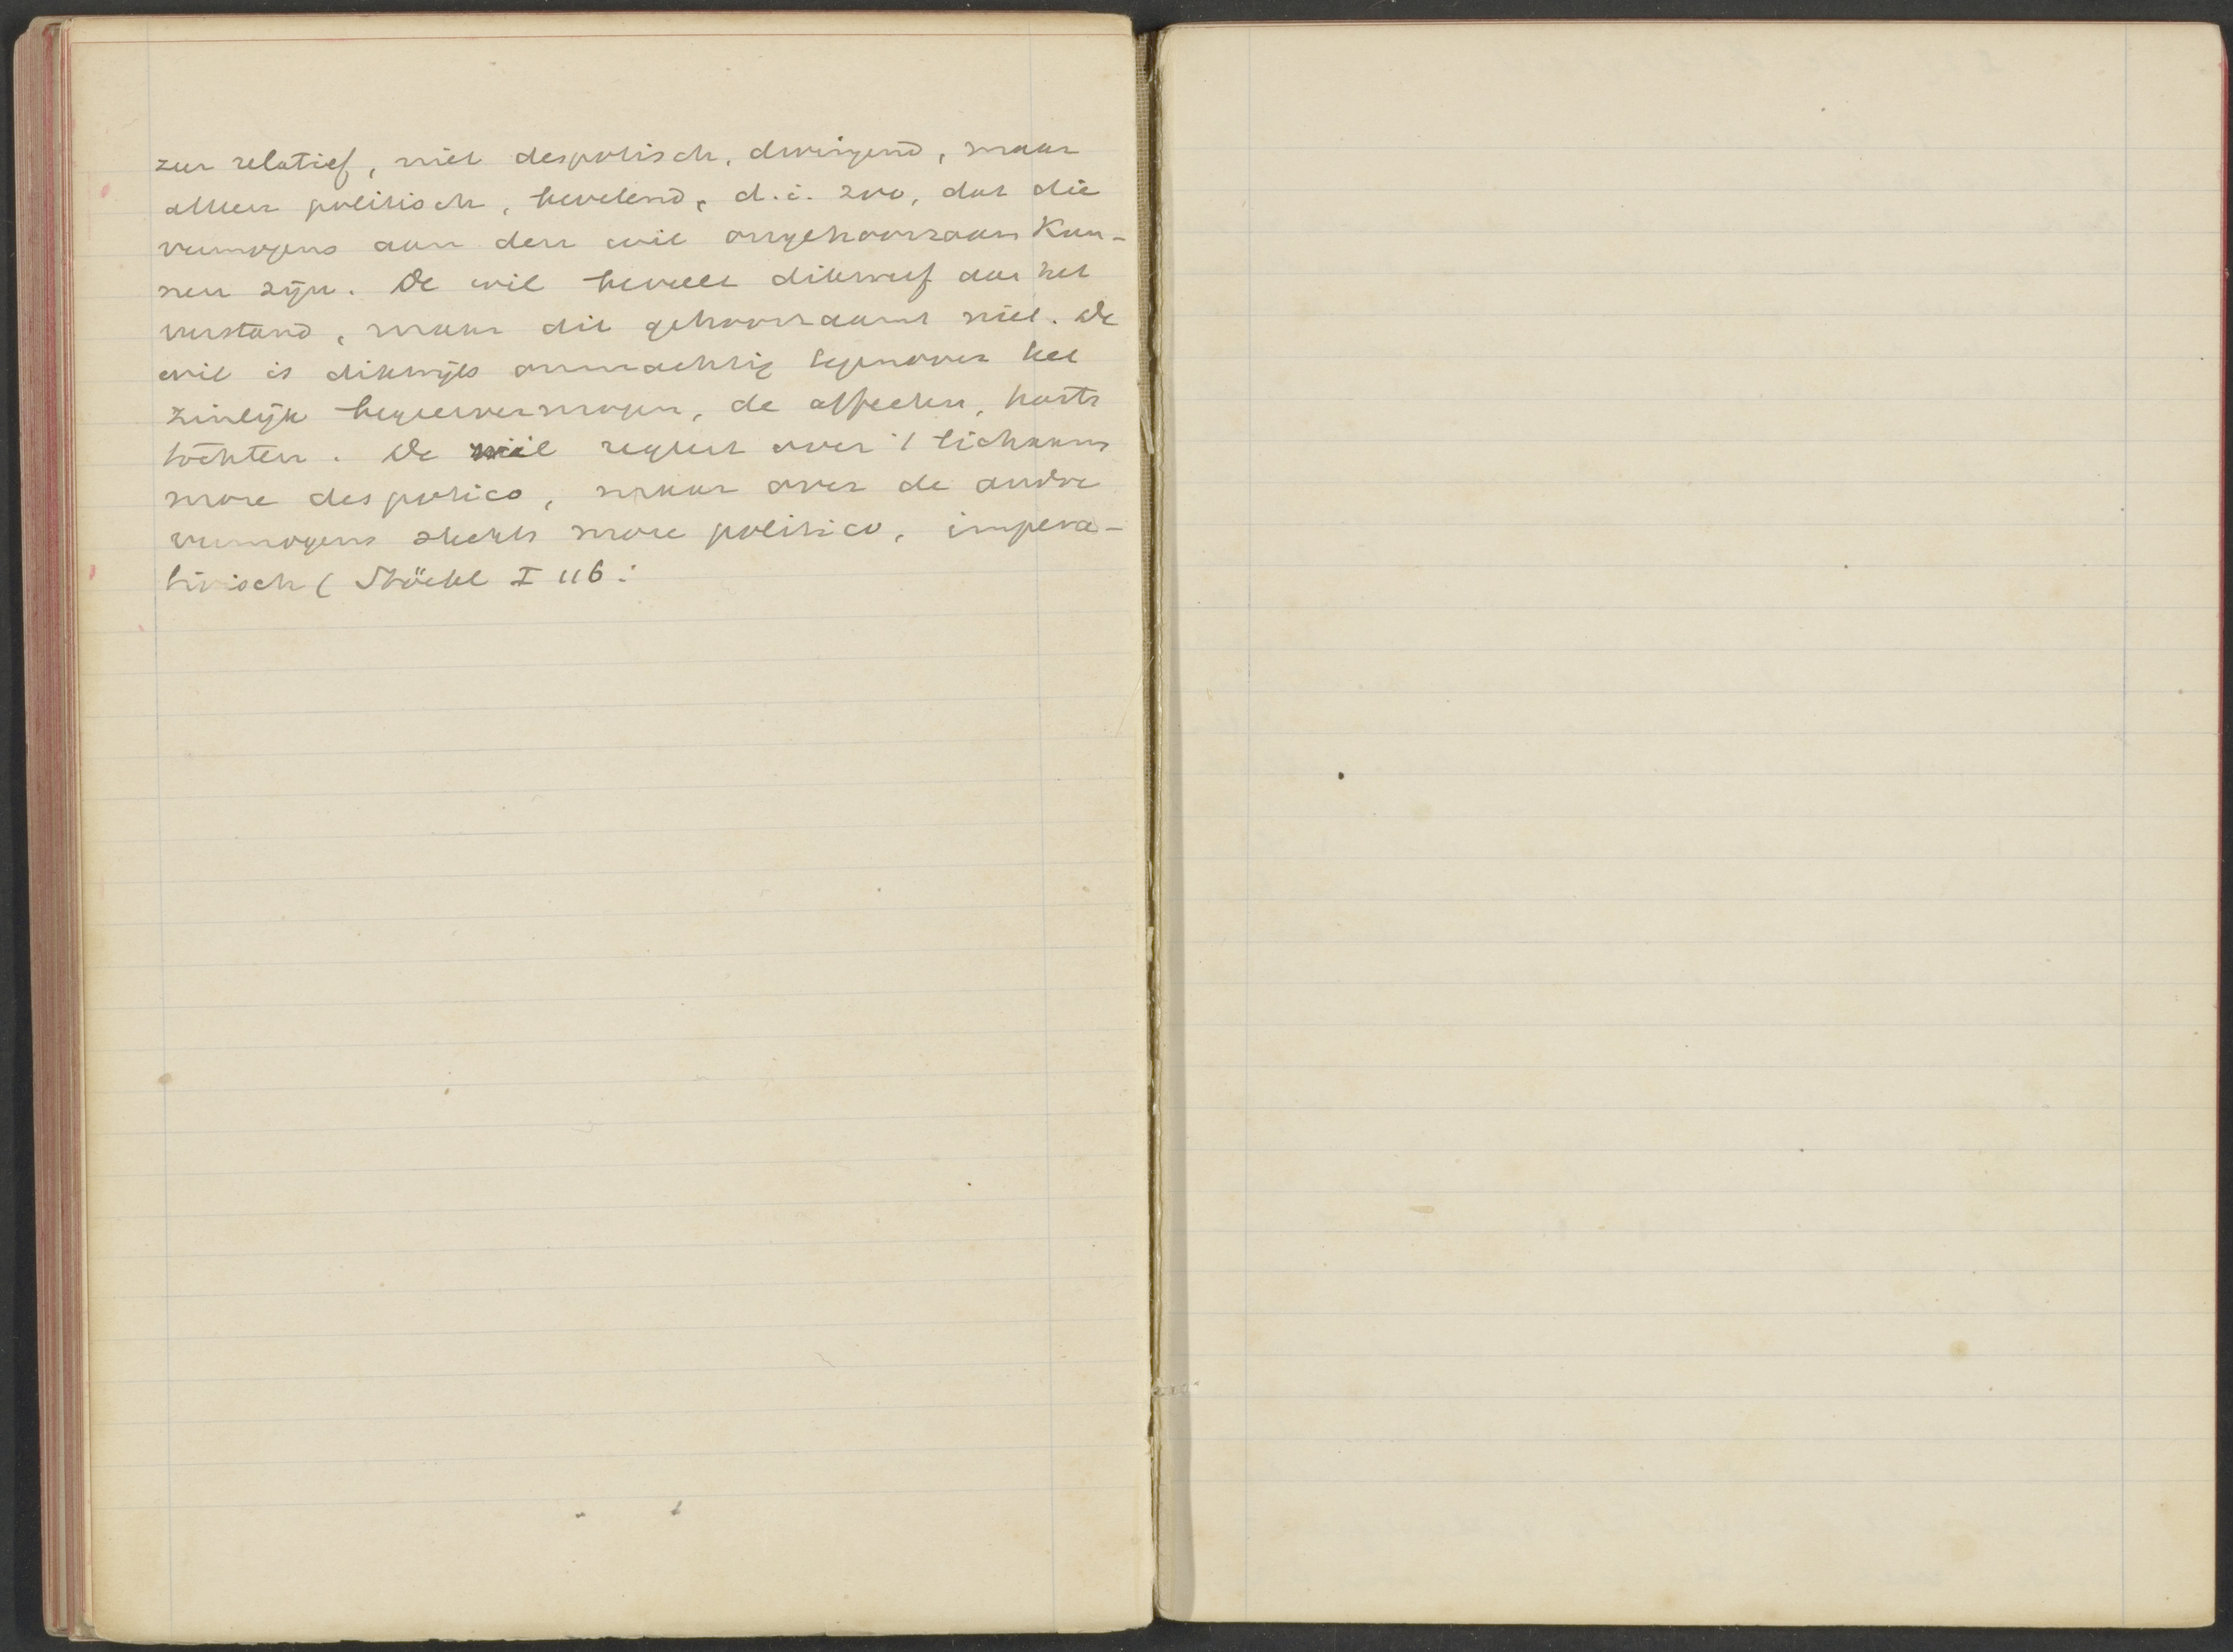 zeer relatief, niet despotisch, dwingend, maar
alleen politisch, bevelend, d.i. zoo, dat die
vermogens aan den wil ongehoorzaam kun-
nen zijn. De wil beveelt dikwerf aan het
verstand, maar dit gehoorzaamt niet. De
wil is dikwijls onmachtig tegenover het
zinlijk begeervermogen, de affecten, harts
tochten. De wil regeert over 't lichaam
more despotico, maar over de andre
vermogens slechts more politico, impera-
tivisch (Stöckl I 116: